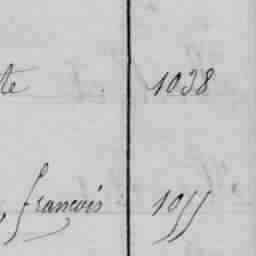 te 1038
, françois 1055